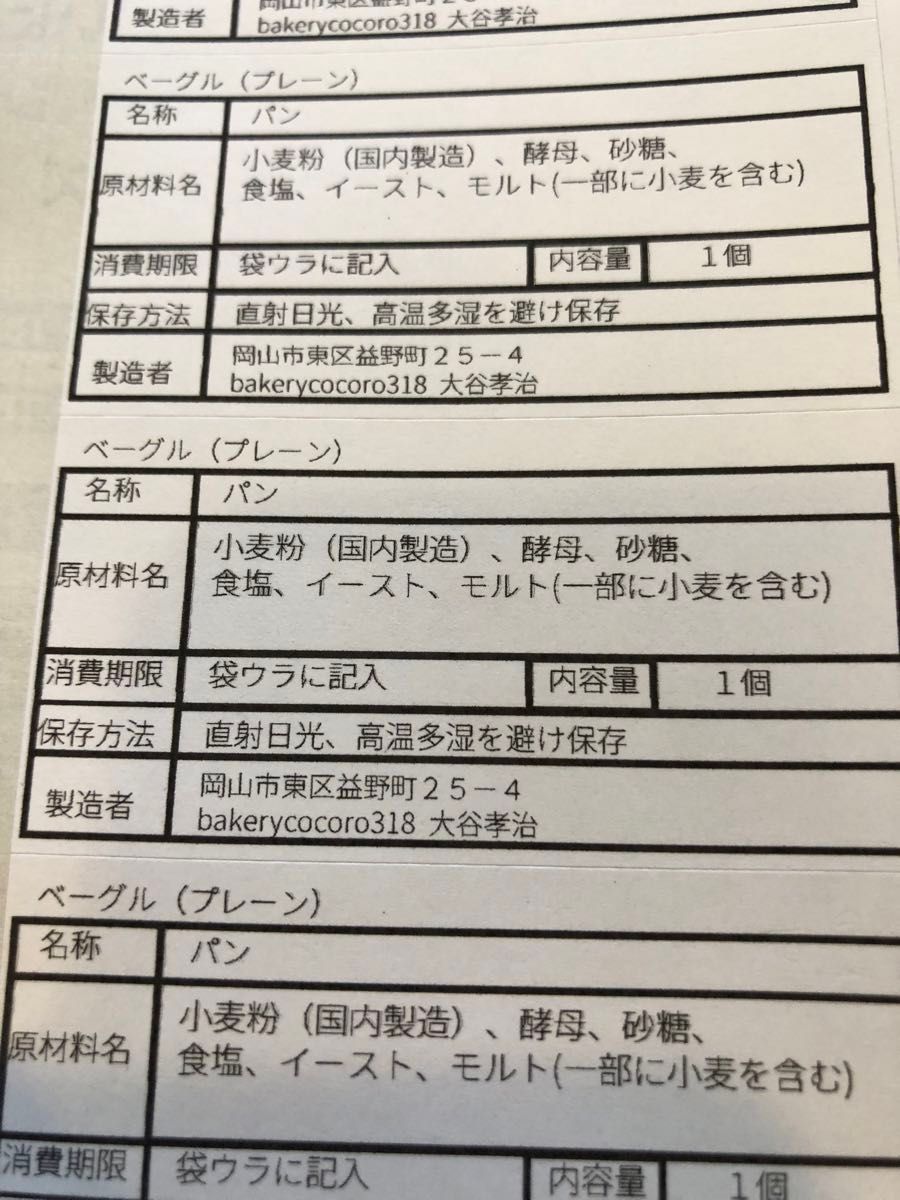 製造者
bakerycocoro318 大谷孝治
ベーグル（プレーン）
名称 パン
原材料名 小麦粉（国内製造）、酵母、砂糖、
食塩、イースト、モルト(一部に小麦を含む)
消費期限 袋ウラに記入 内容量 １個
保存方法 直射日光、高温多湿を避け保存
製造者 岡山市東区益野町２５－４
bakerycocoro318 大谷孝治
ベーグル（プレーン）
名称 パン
原材料名 小麦粉（国内製造）、酵母、砂糖、
食塩、イースト、モルト(一部に小麦を含む)
消費期限 袋ウラに記入 内容量 １個
保存方法 直射日光、高温多湿を避け保存
製造者 岡山市東区益野町２５－４
bakerycocoro318 大谷孝治
ベーグル（プレーン）
名称 パン
原材料名 小麦粉（国内製造）、酵母、砂糖、
食塩、イースト、モルト(一部に小麦を含む)
消費期限 袋ウラに記入 内容量 １個